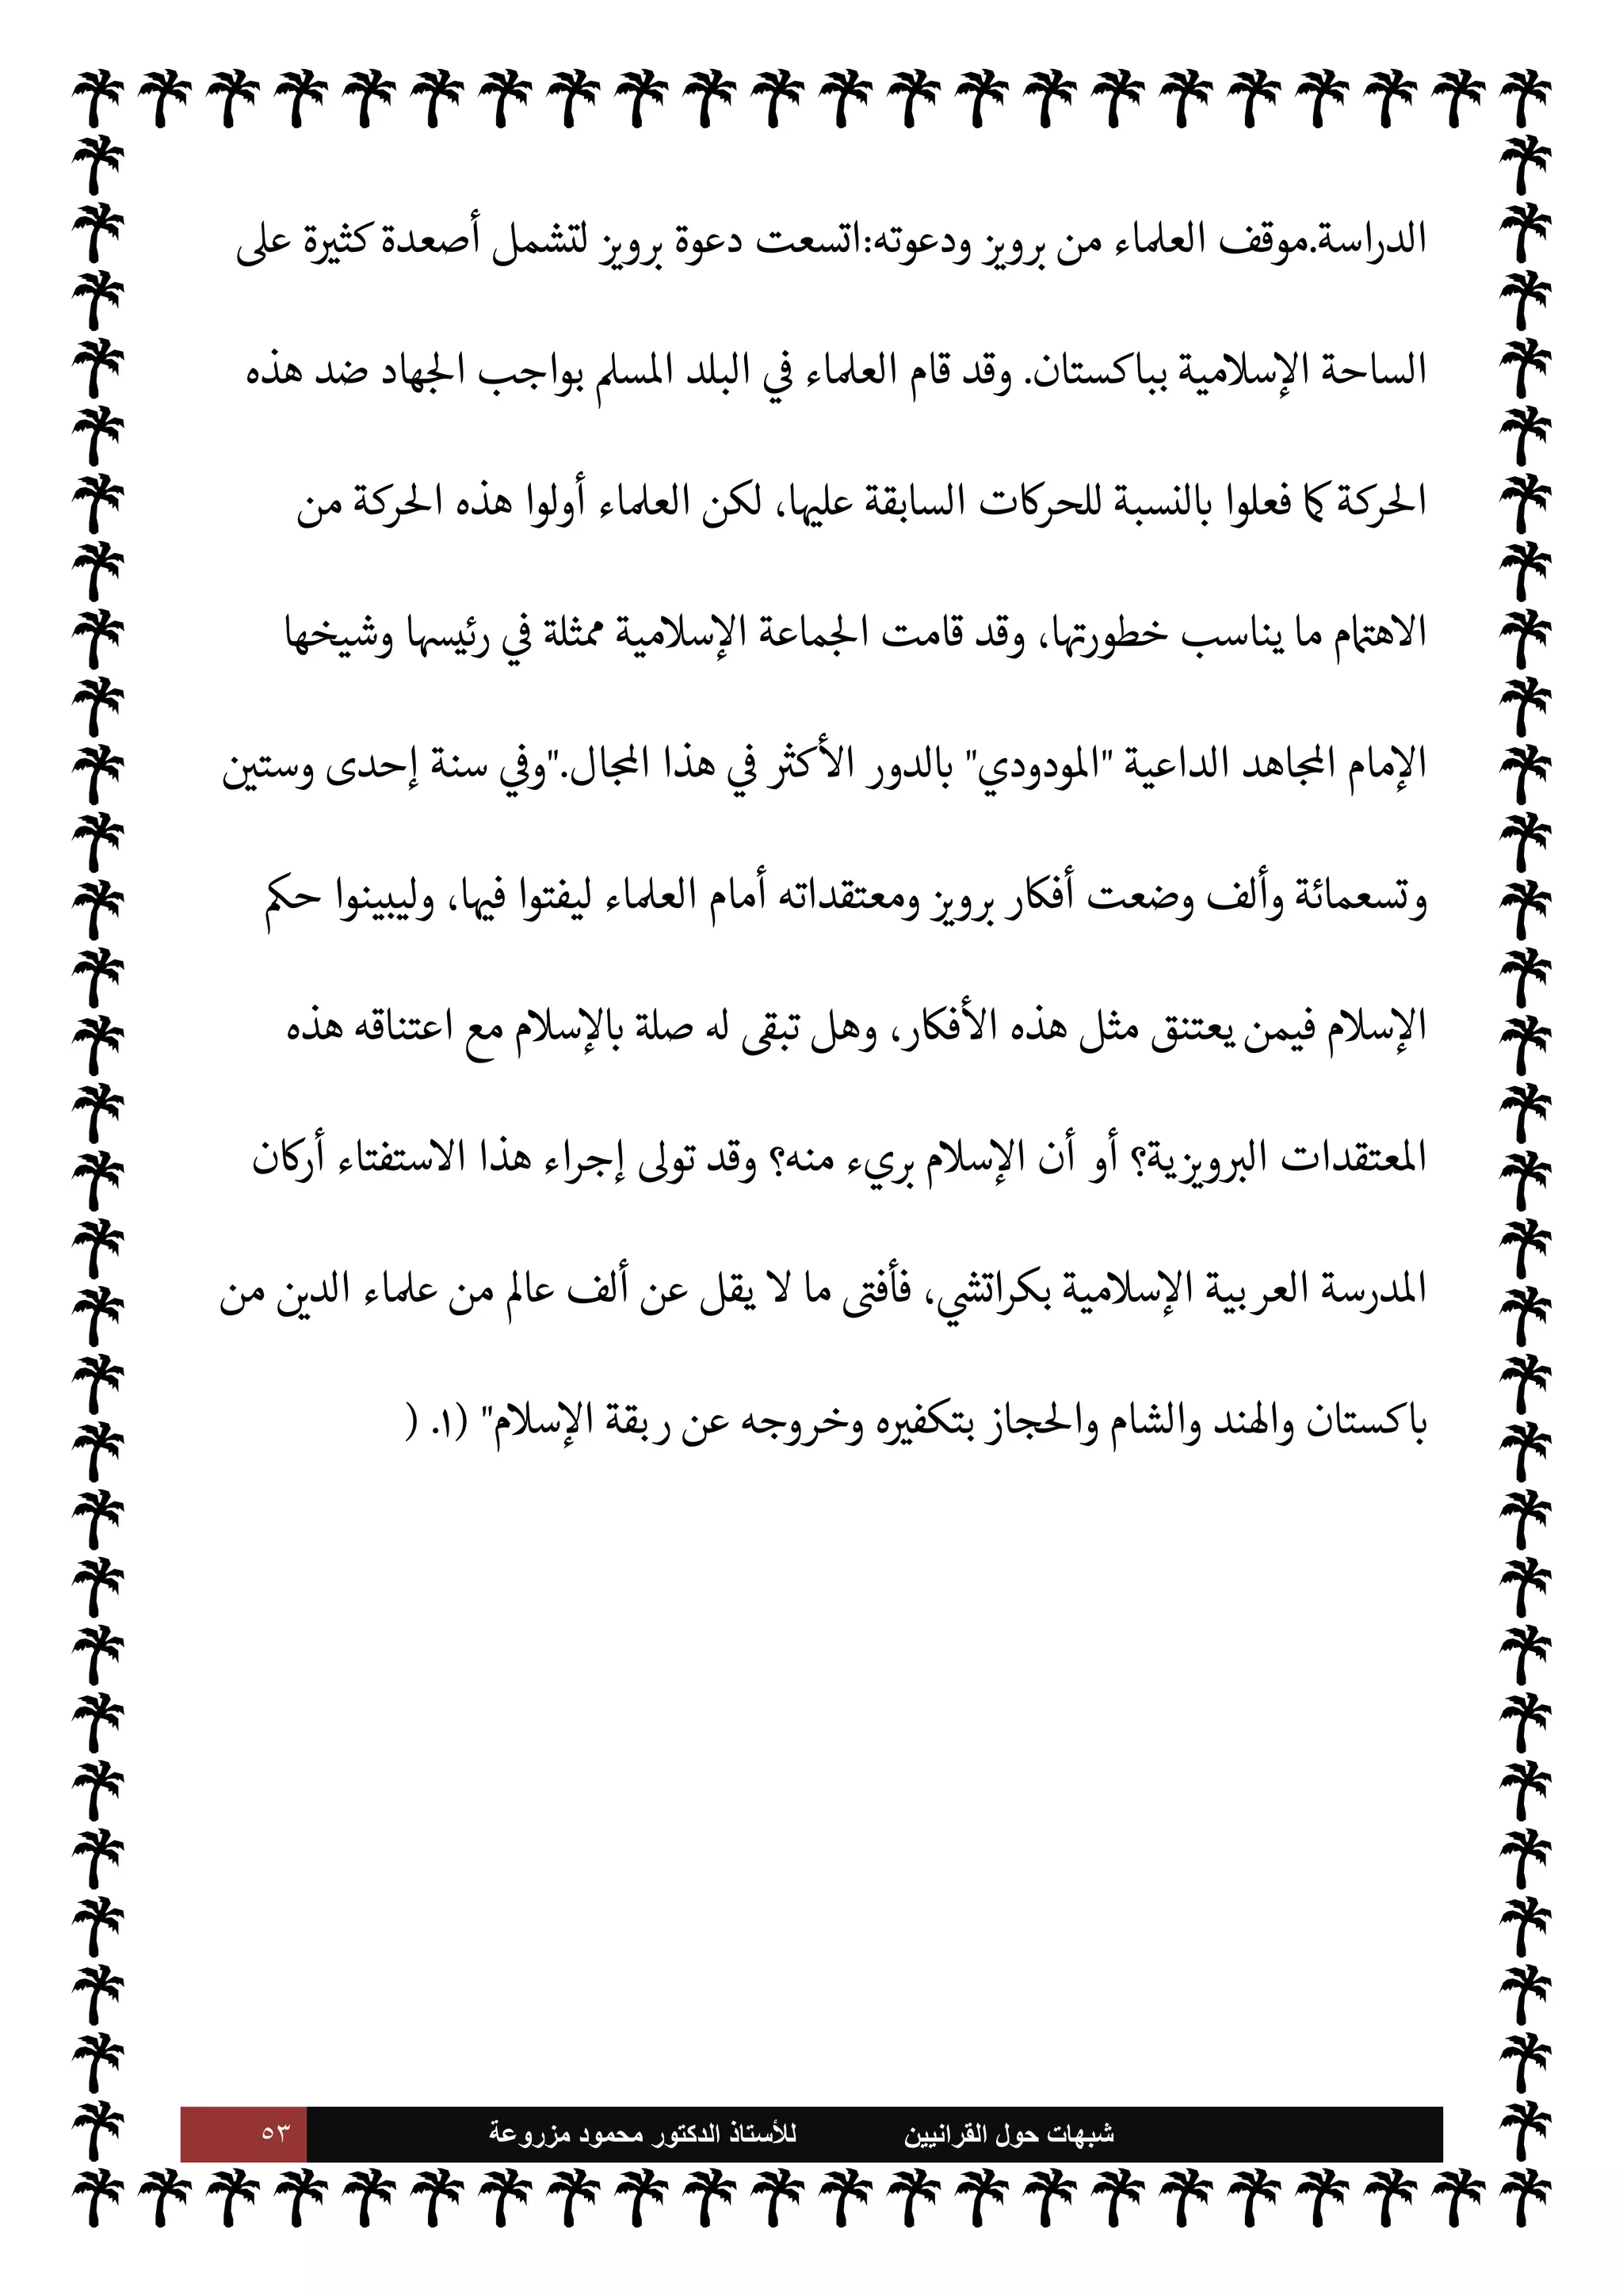 الدراسة.موقف العلماء من برويز ودعوته:اتسعت دعوة برويز لتشمل أصعدة كثيرة على
الساحة الإسلامية بباكستان. وقد قام العلماء في البلد المسلم بواجب الجهاد ضد هذه
الحركة كما فعلوا بالنسبة للحركات السابقة عليها، لكن العلماء أولوا هذه الحركة من
الاهتمام ما يناسب خطورتها، وقد قامت الجماعة الإسلامية ممثلة في رئيسها وشيخها
الإمام المجاهد الداعية "المودودي" بالدور الأكثر في هذا المجال."وفي سنة إحدى وستين
وتسعمائة وألف وضعت أفكار برويز ومعتقداته أمام العلماء ليفتوا فيها، وليبينوا حكم
الإسلام فيمن يعتنق مثل هذه الأفكار، وهل تبقى له صلة بالإسلام مع اعتناقه هذه
المعتقدات البرويزية؟ أو أن الإسلام بريء منه؟ وقد تولى إجراء هذا الاستفتاء أركان
المدرسة العربية الإسلامية بكراتشي، فأفتى ما لا يقل عن ألف عالم من علماء الدين من
باكستان والهند والشام والحجاز بتكفيره وخروجه عن ربقة الإسلام" (١. (
شبهات حول القرانيين للأستاذ الدكتور محمود مزروعة ٥٣